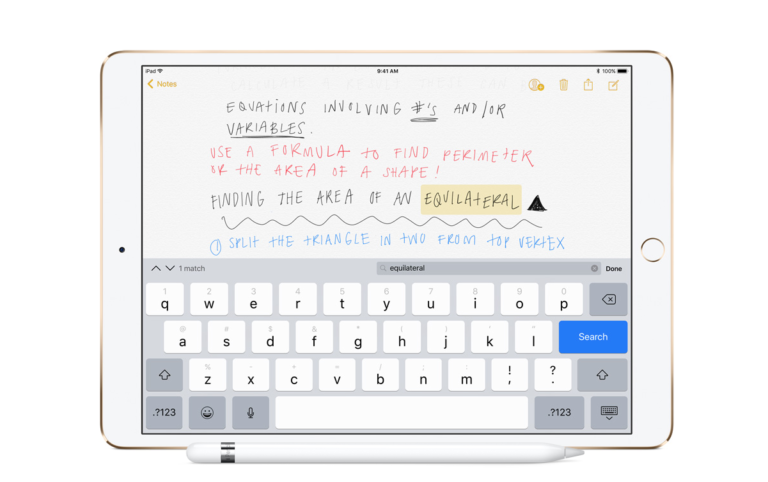 iPad 9:41 AM 100%
Notes
EQUATIONS INVOLVING #'S AND/OR
VARIABLES.
USE A FORMULA TO FIND PERIMETER
OR THE AREA OF A SHAPE!
FINDING THE AREA OF AN EQUILATERAL
① SPLIT THE TRIANGLE IN TWO FROM TOP VERTEX
1 match equilateral Done
1 2 3 4 5 6 7 8 9 0
q w e r t y u i o p
@ # $ & * ( ) ' "
a s d f g h j k l Search
% - + = / ; :
z x c v b n m ! , ? .
.?123 .?123